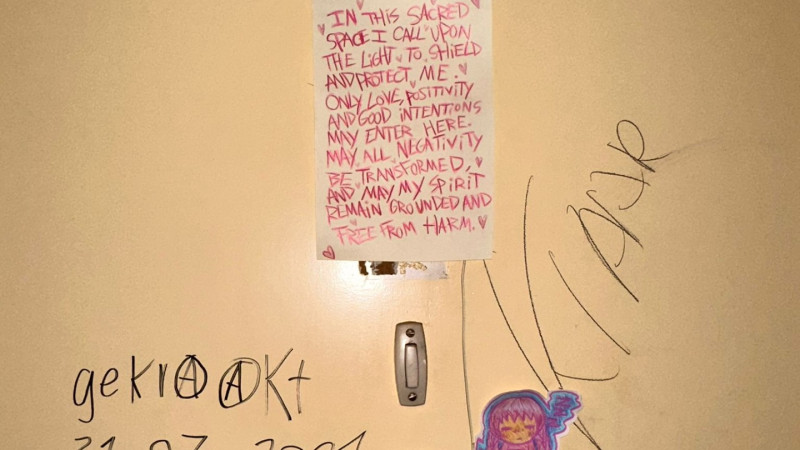 IN THIS SACRED
SPACE I CALL UPON
THE LIGHT TO SHIELD
AND PROTECT ME.
ONLY LOVE, POSITIVITY
AND GOOD INTENTIONS
MAY ENTER HERE.
MAY ALL NEGATIVITY
BE TRANSFORMED,
AND MAY MY SPIRIT
REMAIN GROUNDED AND
FREE FROM HARM.
gekrAAKt